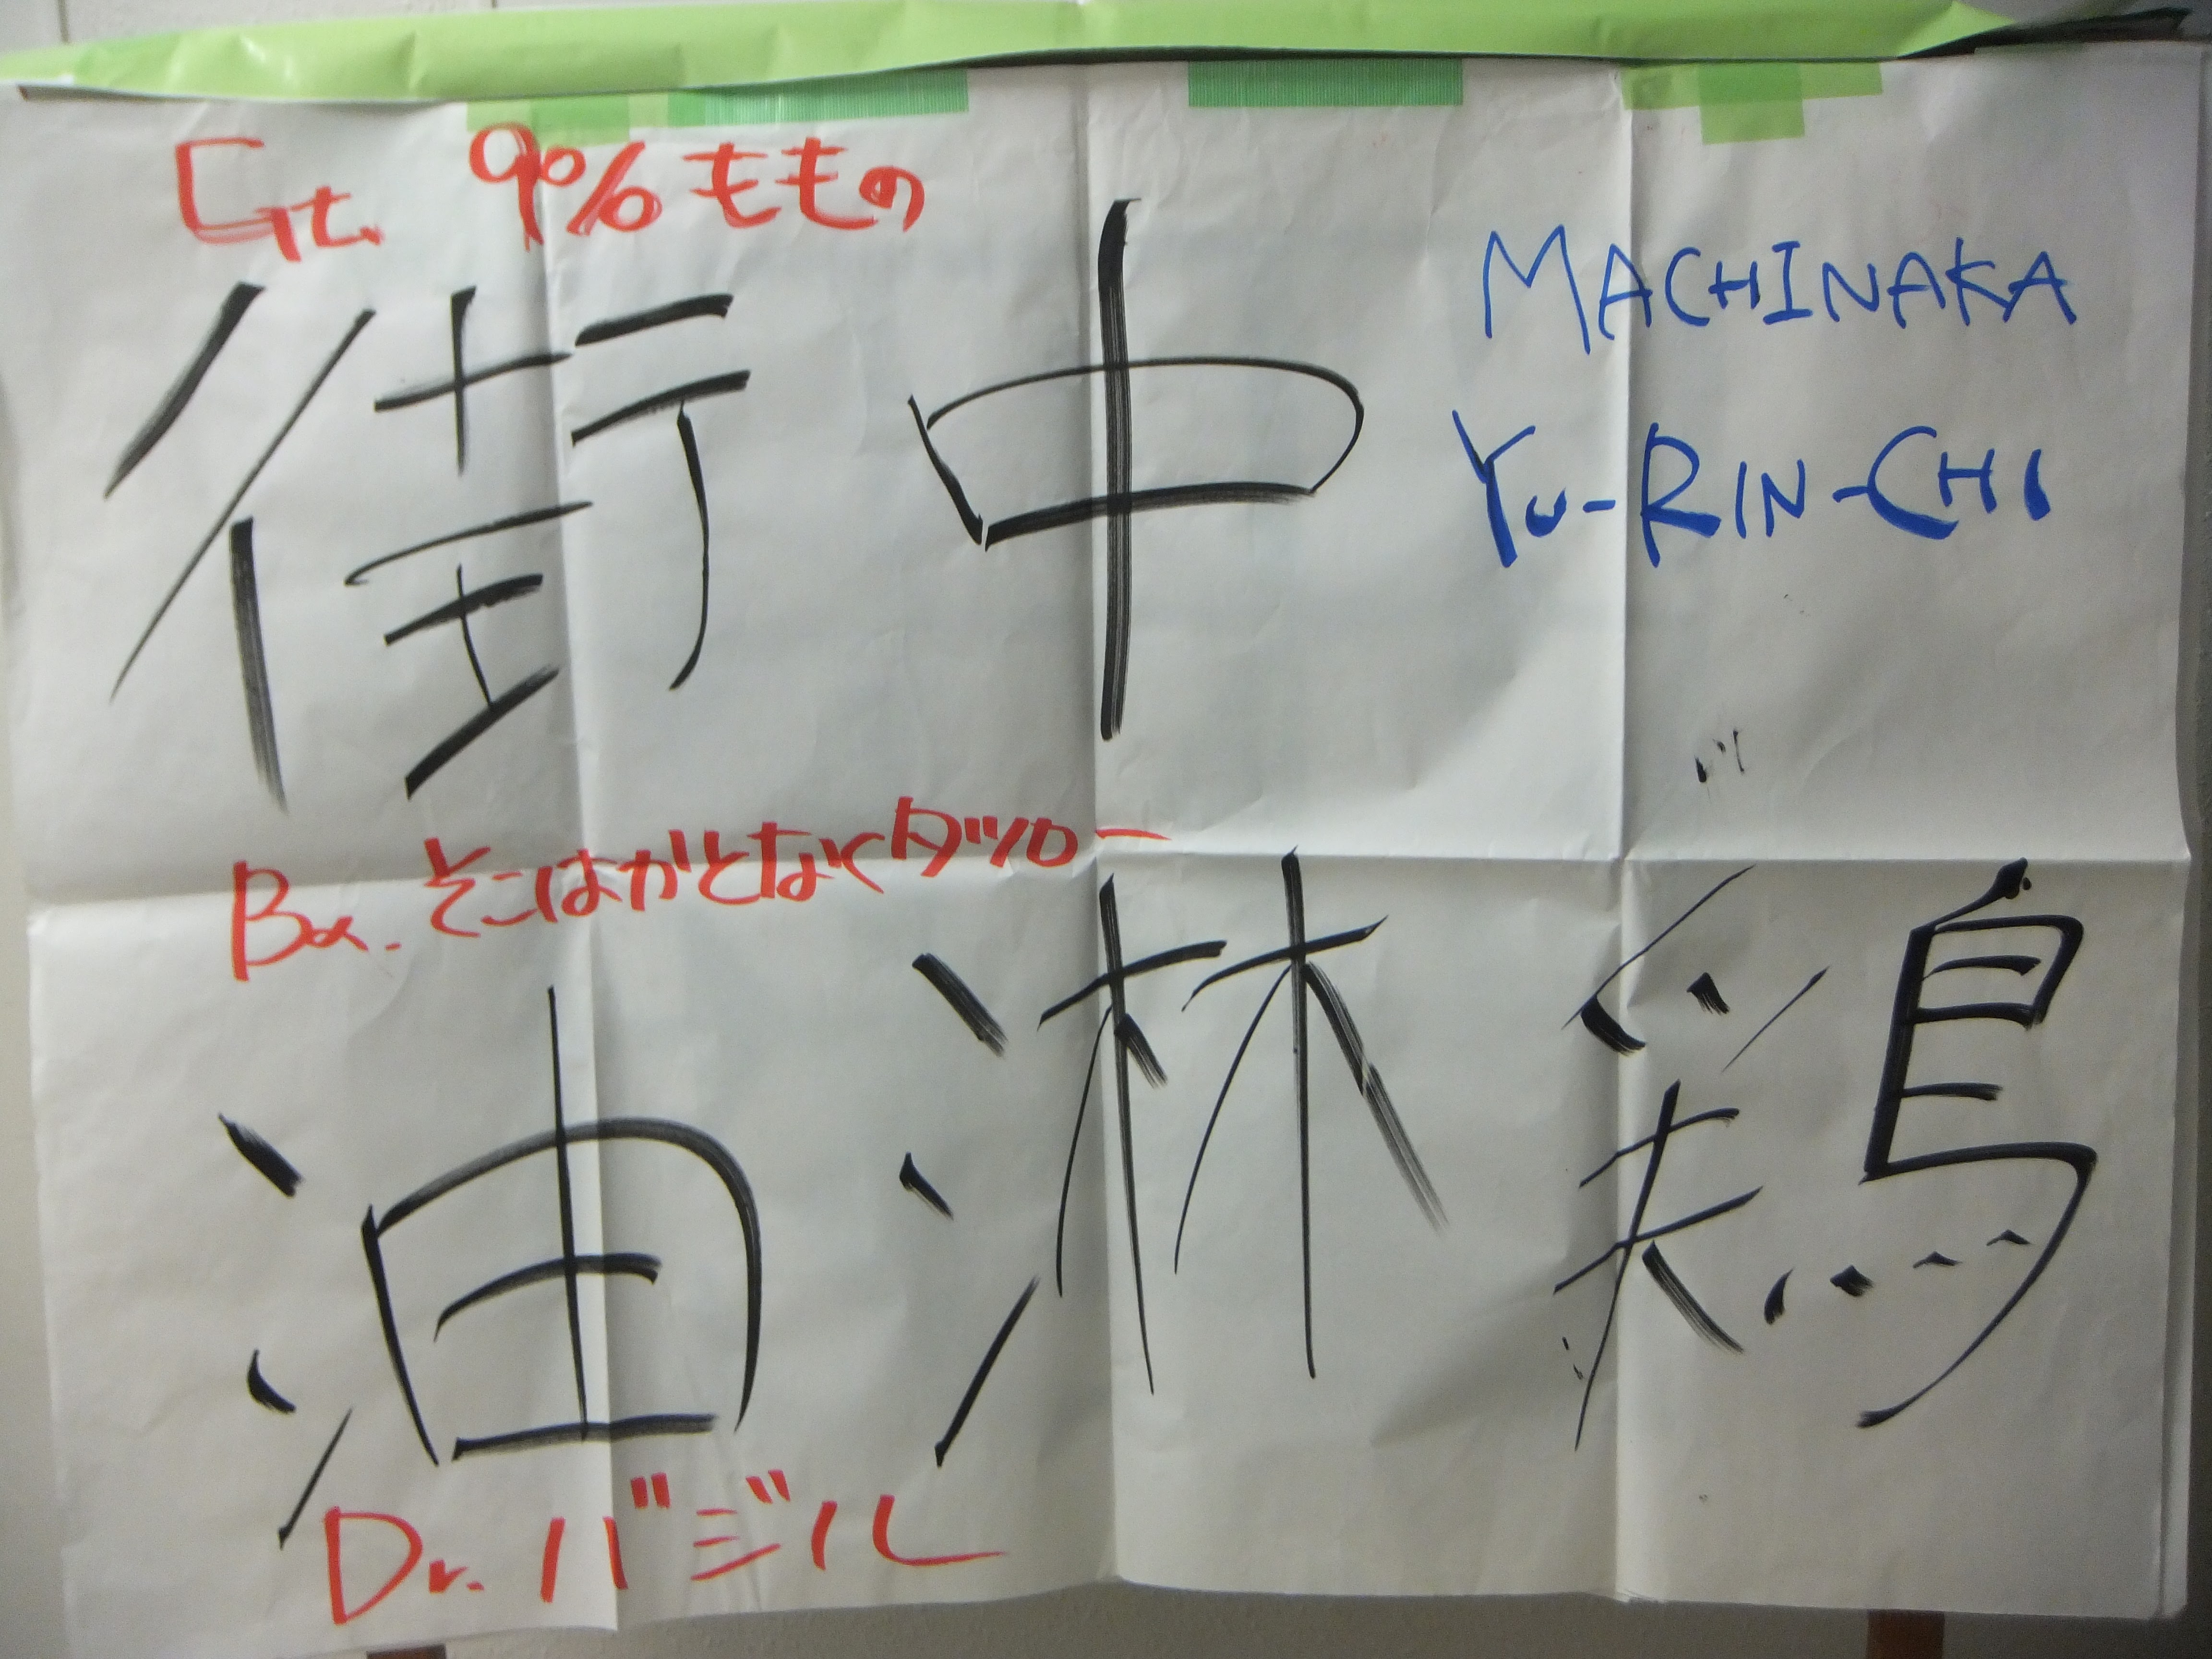 Gt. 9%ももの
街中
MACHINAKA
YU-RIN-CHI
Ba. そこはかとなくタツロー
油淋鶏
Dr. バジル